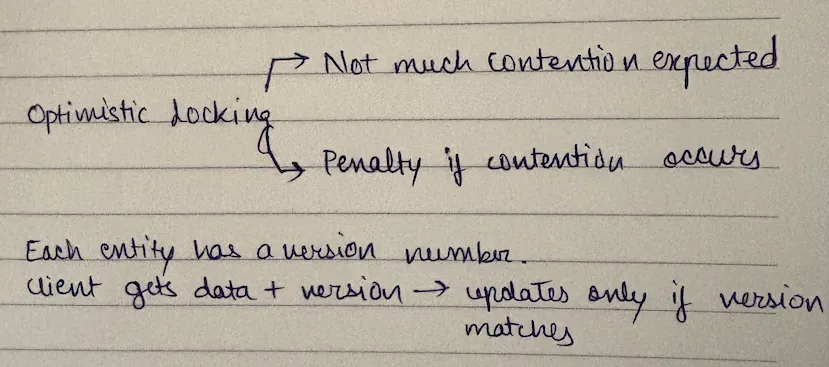 → Not much contention expected
Optimistic Locking
→ Penalty if contention occurs
Each entity has a version number.
Client gets data + version → updates only if version
matches